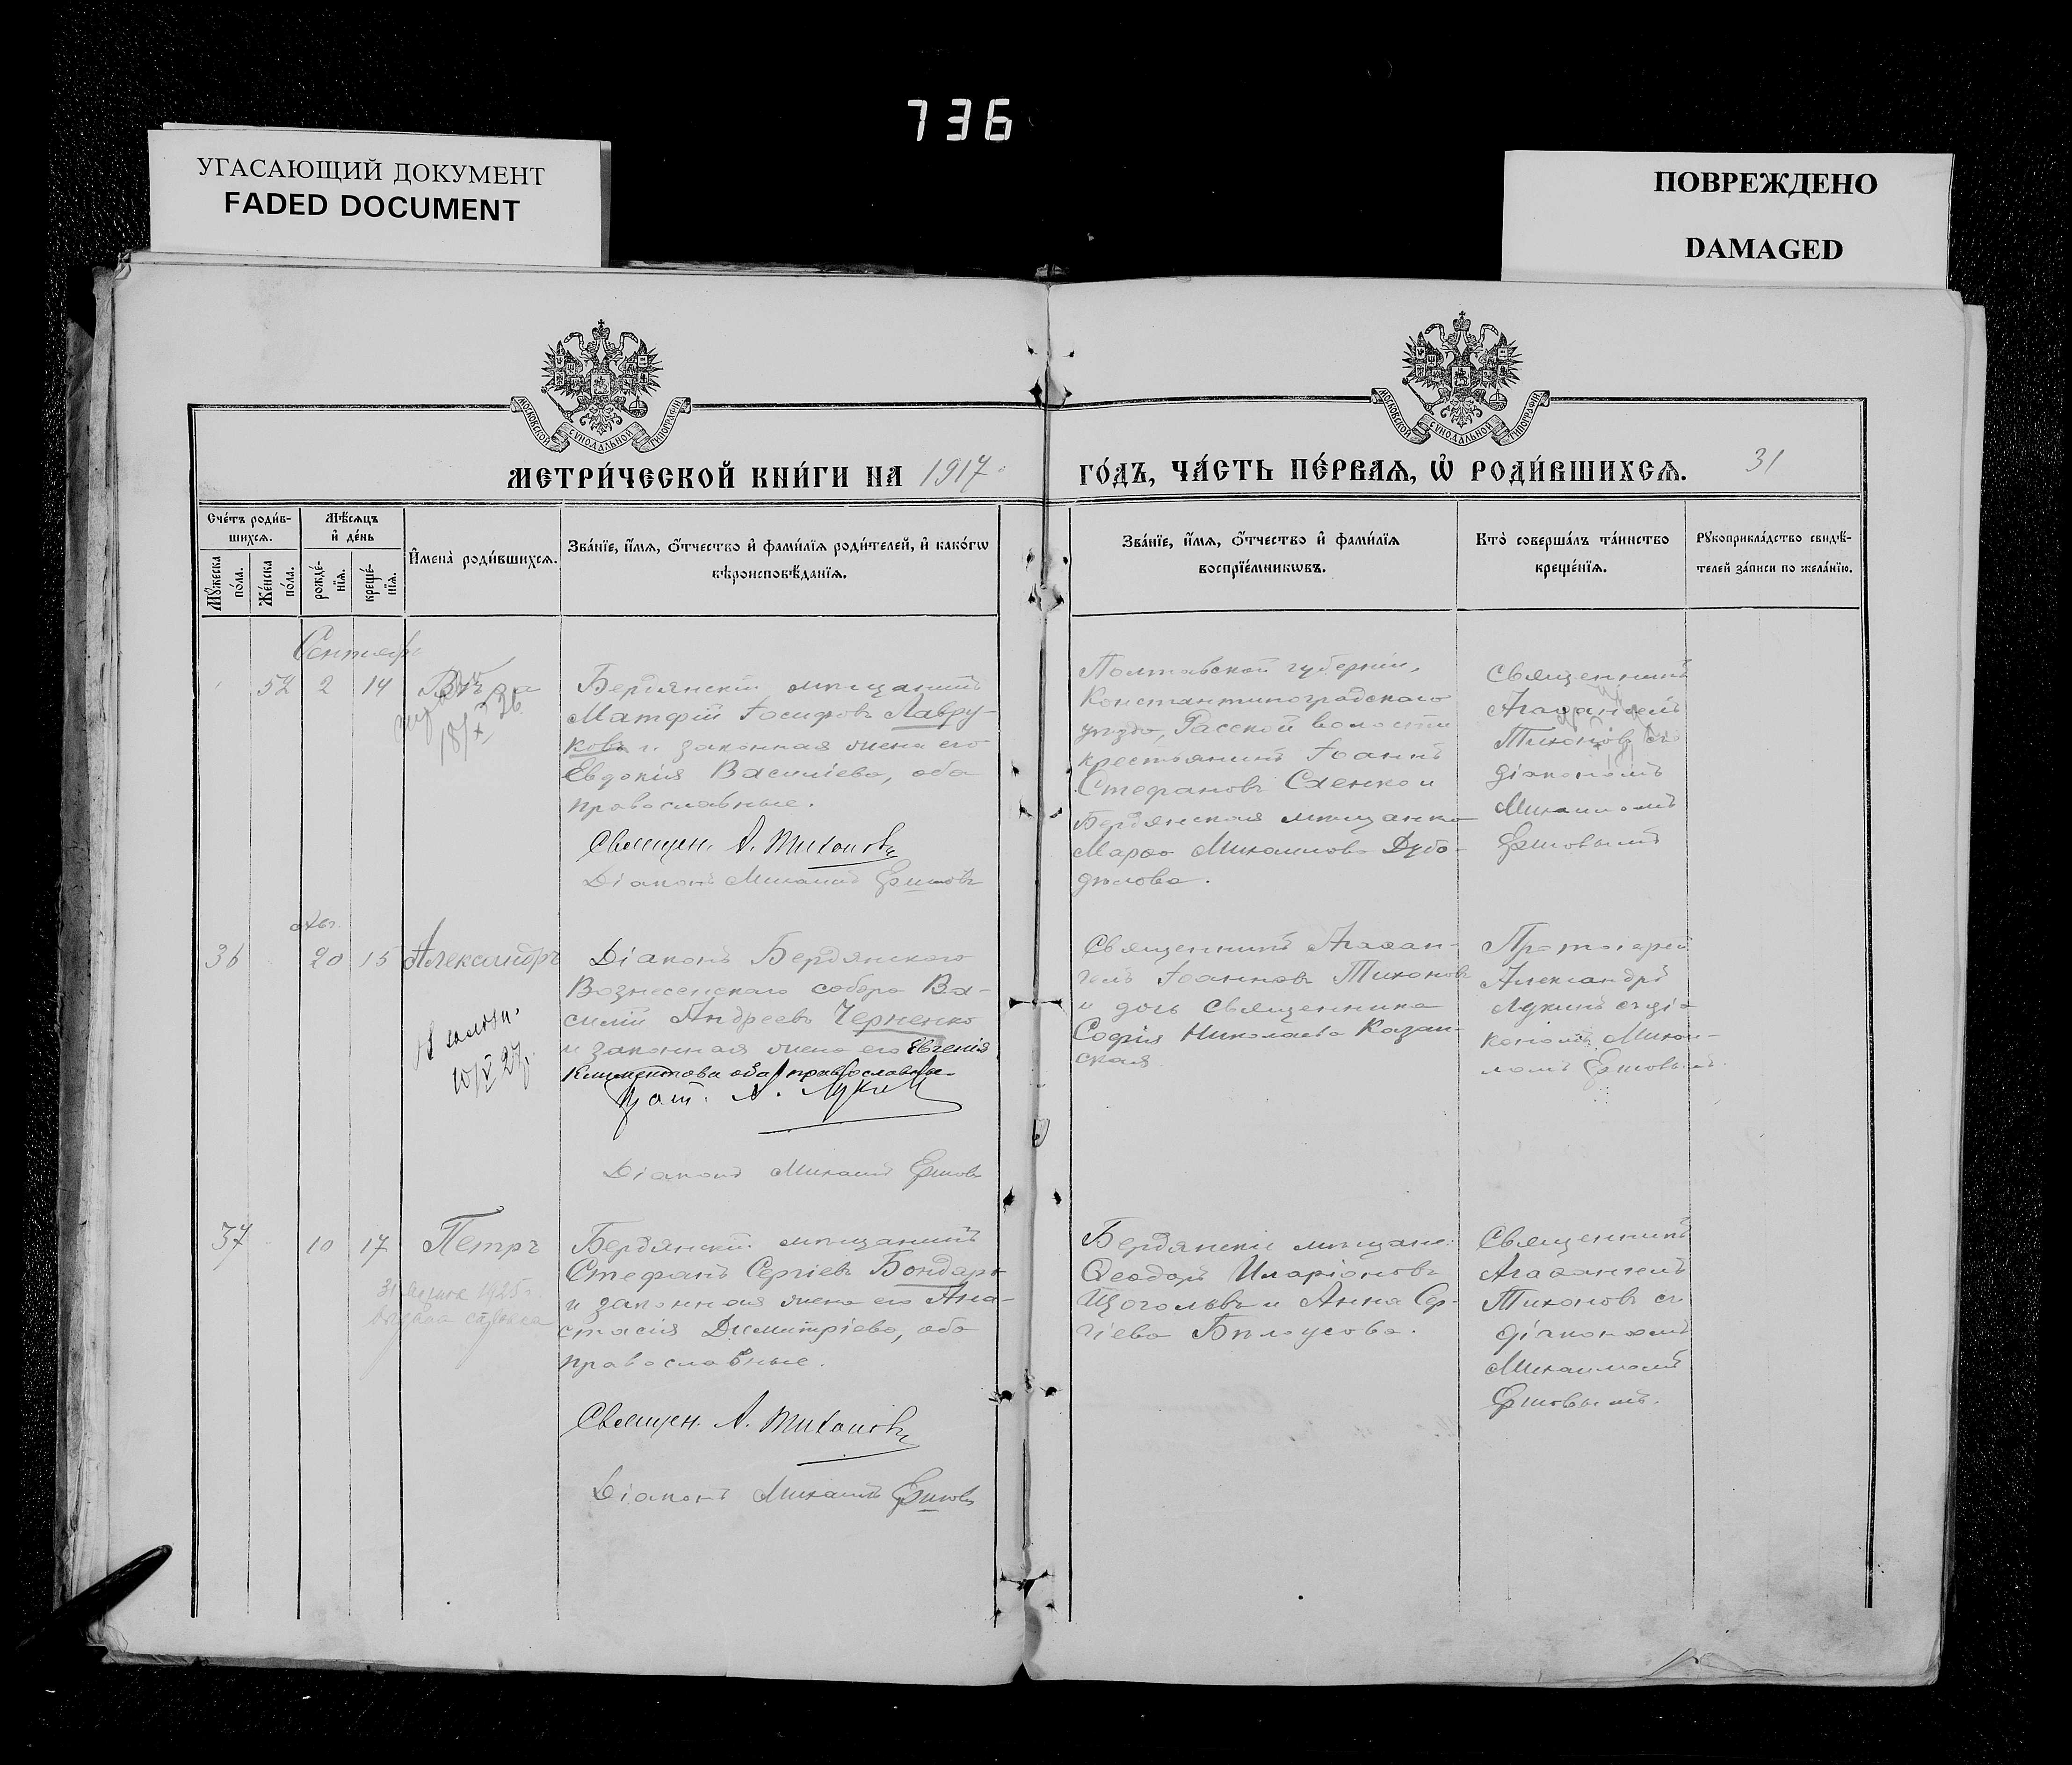 736
УГАСАЮЩИЙ ДОКУМЕНТ
FADED DOCUMENT
ПОВРЕЖДЕНО
DAMAGED
МОСКОВСКОЙ СѴНОДАЛЬНОЙ ТИПОГРАФІИ
МОСКОВСКОЙ СѴНОДАЛЬНОЙ ТИПОГРАФІИ
МЕТРИ́ЧЕСКОЙ КНИ́ГИ НА 1917
ГО́ДЪ, ЧА́СТЬ ПЕ́РВАѦ, Ѡ҆ РОДИ́ВШИХСѦ.
31
Сче́тъ роди́в-
шихсѧ.
Мꙋ́жеска по́ла.
Же́нска по́ла.
Мѣ́сѧцъ
и҆ де́нь
рожде́-
нїѧ.
креще́-
нїѧ.
И҆мена̀ роди́вшихсѧ.
Зва́нїе, и҆́мѧ, ѻ҆́тчество и҆ фами́лїѧ роди́телей, и҆ како́гѡ
вѣроисповѣ́данїѧ.
Зва́нїе, и҆́мѧ, ѻ҆́тчество и҆ фами́лїѧ
воспрїе́мникѡвъ.
Кто̀ соверша́лъ та́инство
креще́нїѧ.
Рꙋкоприкла́дство свидѣ́-
телей за́писи по жела́нїю.
Сентябр
52 2 14 Вѣра
18/X 26
Бердянскій мѣщанинъ
Матфій Іосифовъ Лавру-
ковъ и законная жена его
Евдокія Василіева, оба
православные.
Священ. А. Тихоновъ
Діаконъ Михаилъ Ершовъ
Полтавской губерніи,
Константиноградскаго
уѣзда, волости
крестьянинъ Іоаннъ
Стефановъ и
Бердянская мѣщанка
Марѳа Михаилова Дубо-
дѣлова.
Священникъ
Агаѳангелъ
Тихоновъ съ
діакономъ
Михаиломъ
Ершовымъ
Авг.
36 20 15 Александръ
10/V 27 г.
Діаконъ Бердянскаго
Вознесенскаго собора Ва-
силій Андреевъ Черненко
и законная жена его Евгенія
Климентова оба православные
Прот. А. Лукинъ
Діаконъ Михаилъ Ершовъ
Священникъ Агаѳан-
гелъ Іоанновъ Тихоновъ
и дочь священника
Софія Николаева Казан-
ская
Протоіерей
Александръ
Лукинъ съ діа-
кономъ Михаи-
ломъ Ершовымъ.
37 10 17 Петръ
1925 г.
выдана
Бердянскій мѣщанинъ
Стефанъ Сергіевъ Бондарь
и законная жена его Ана-
стасія Димитріева, оба
православные.
Священ. А. Тихоновъ
Діаконъ Михаилъ Ершовъ
Бердянскіе мѣщане:
Ѳеодоръ Иларіоновъ
Щегольевъ и Анна Сер-
гіева Бѣлоусова.
Священникъ
Агаѳангелъ
Тихоновъ съ
діакономъ
Михаиломъ
Ершовымъ.